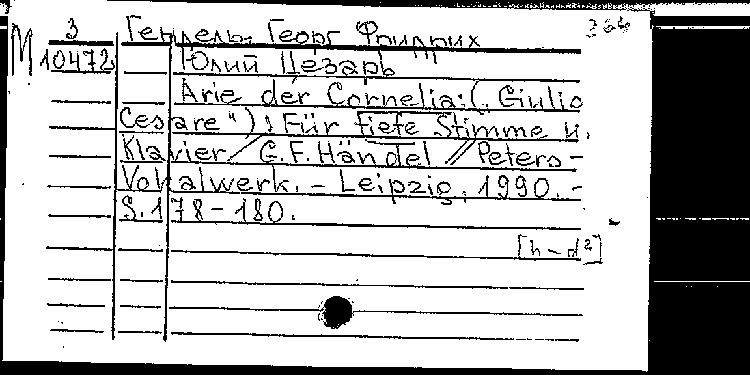 3 Гендель, Георг Фридрих
M 10472 Юлий Цезарь
Arie der Cornelia: („Giulio
Cesare“): Für tiefe Stimme u.
Klavier / G.F. Händel // Peters-
Vokalwerk. – Leipzig, 1990. –
S. 178 – 180.
[h – d²]